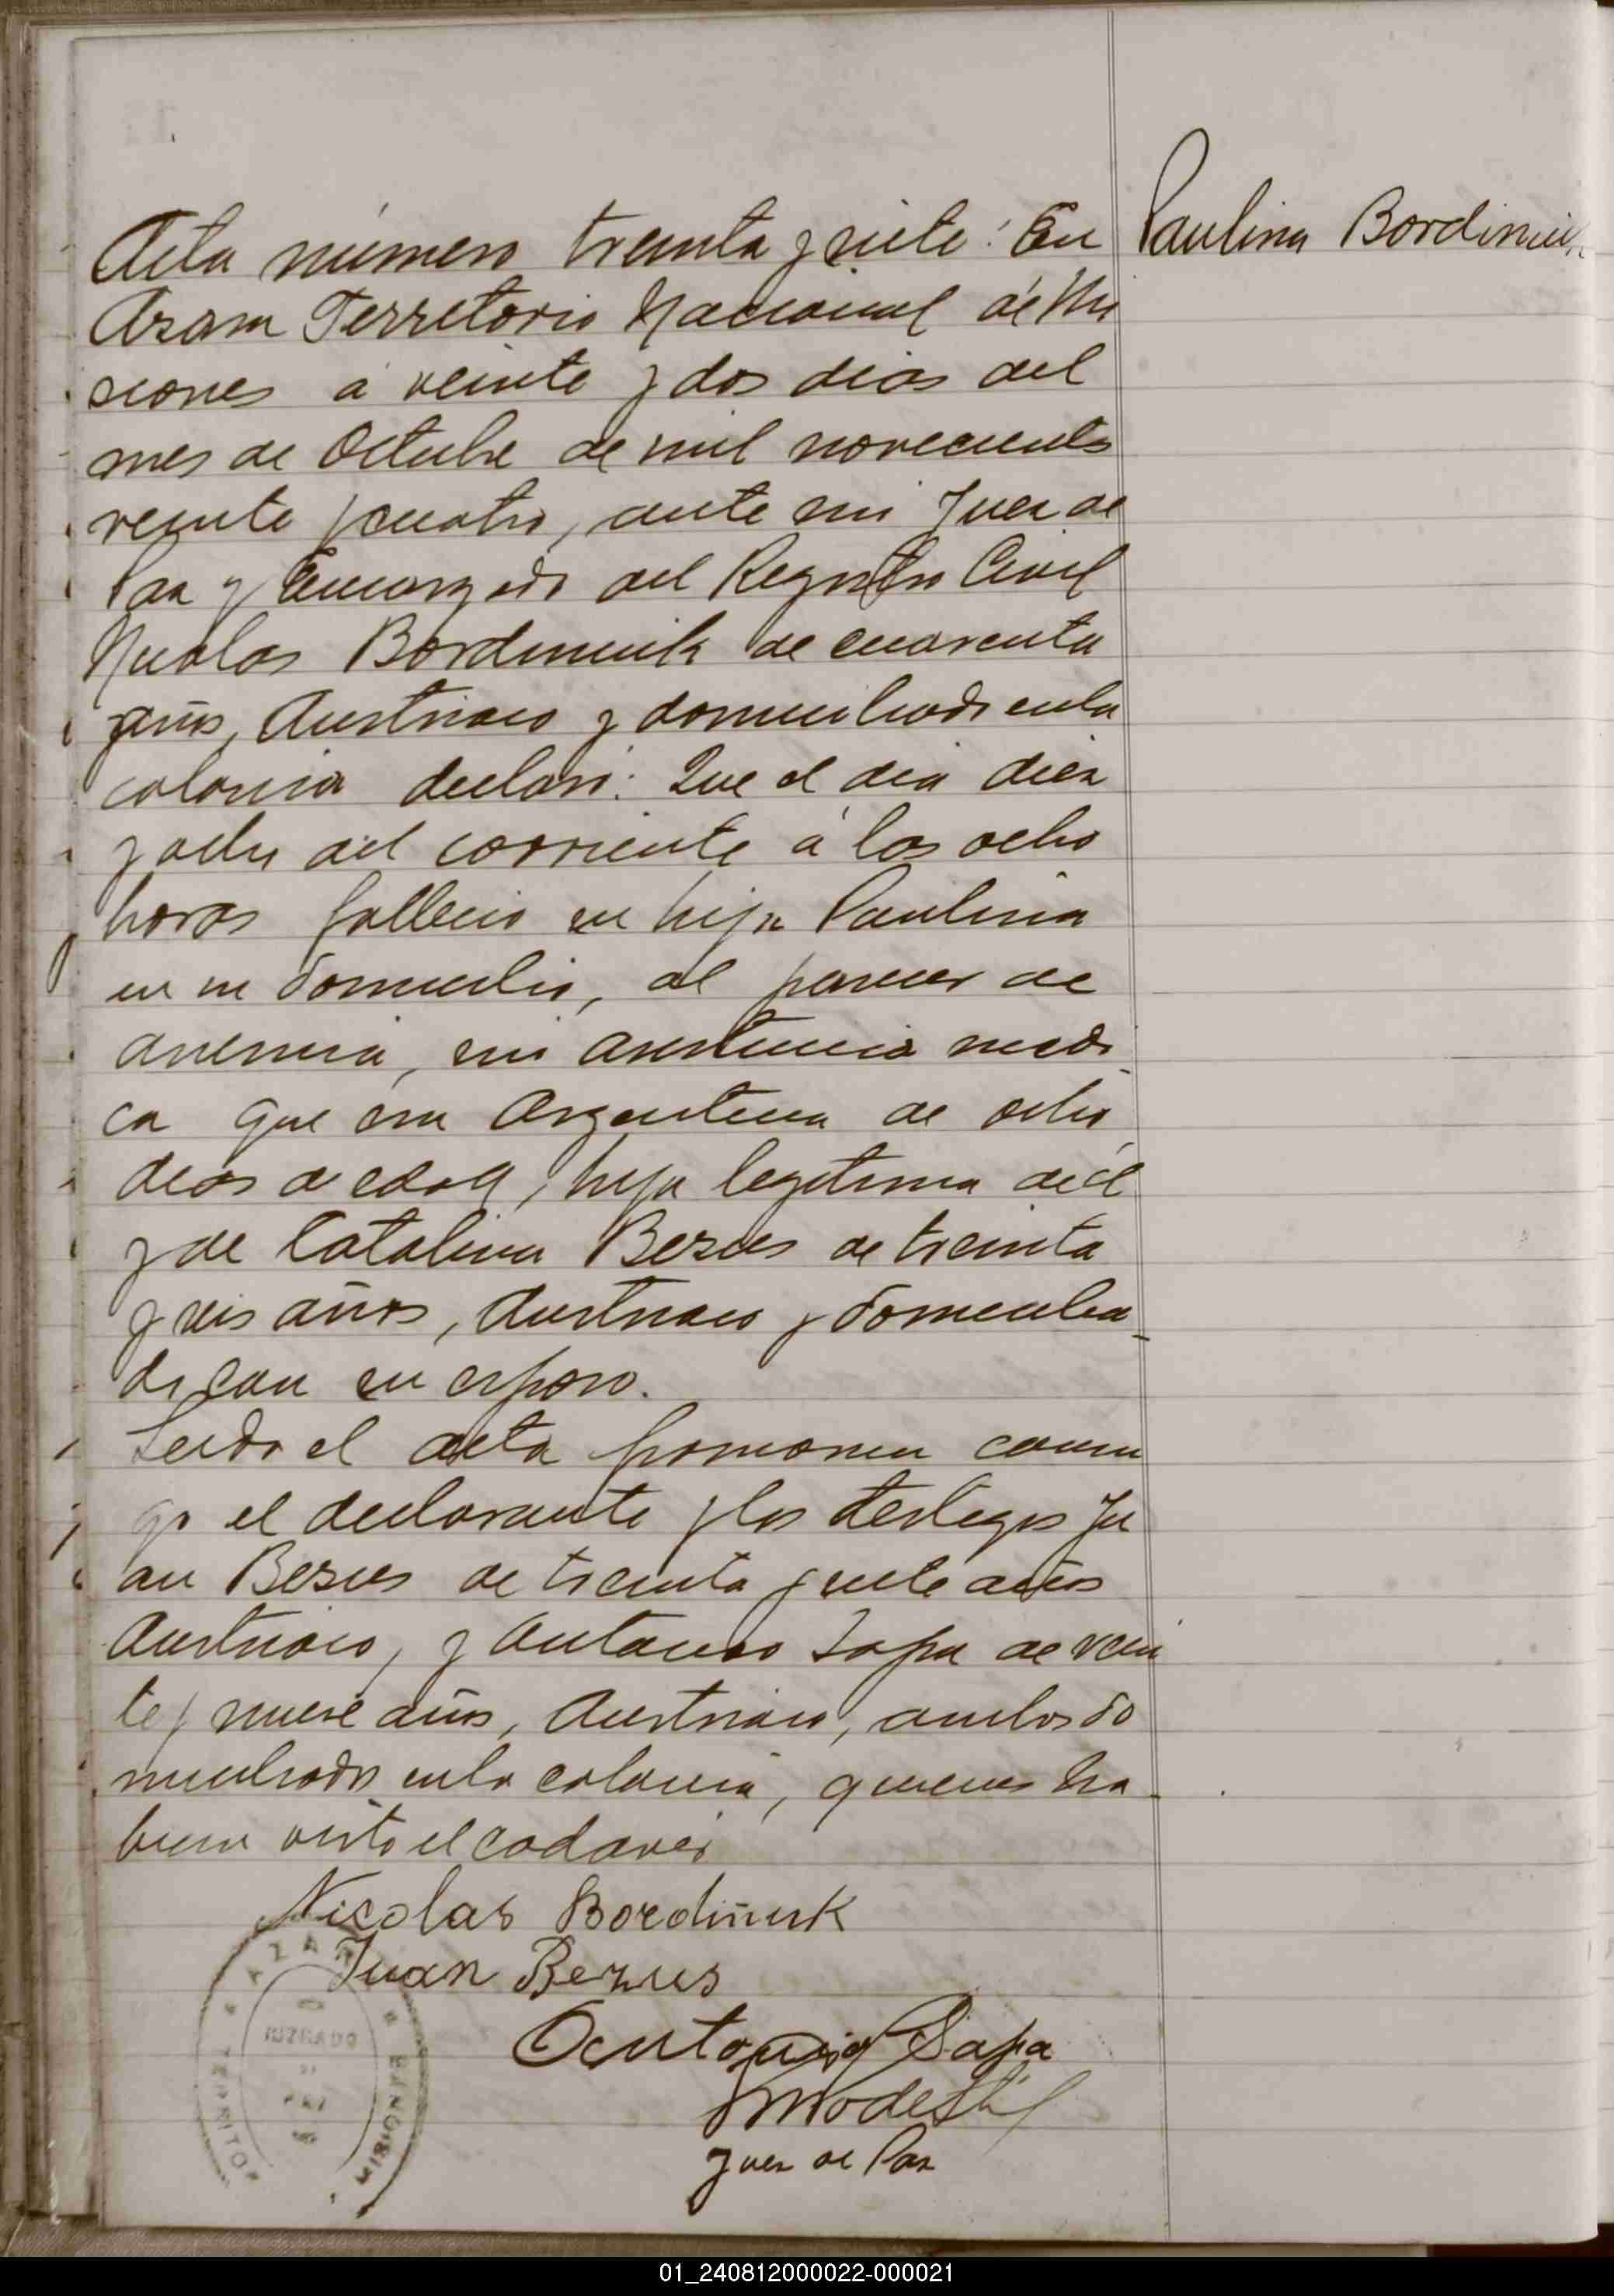 Acta número treinta y siete: En
Paulina Bordiniuk
Azara Territorio Nacional de Mi
siones á veinte y dos dias del
mes de Octubre de mil novecientos
veinte y cuatro, ante mi Juez de
Paz y Encargado del Registro Civil
Nicolas Bordinuik de cuarenta
años, Austriaco y domiciliado en la
colonia declaró: Que el dia diez
y ocho del corriente á las ocho
horas fallecio su hija Paulina
en su domicilio, al parecer de
anemia, sin asistencia medi
ca que era Argentina de ocho
dias de edad, hija legitima de él
y de Catalina Bezus de treinta
y seis años, Austriaco y domicilia-
da con su esposo.
Leida el acta firmaron conmi
go el declarante y los testigos Ju
an Bezus de treinta y siete años
Austriaco, y Antonio Sapa de vein
te y nueve años, Austriaco, ambos do
miciliados en la colonia, quienes ha-
bian visto el cadaver
Nicolas Bordiñuk
Juan Bezus
Antonio Sapa
Juez de Paz
AZARA
JUZGADO
DE
PAZ
TERRITO
MISIONES
01_240812000022-000021